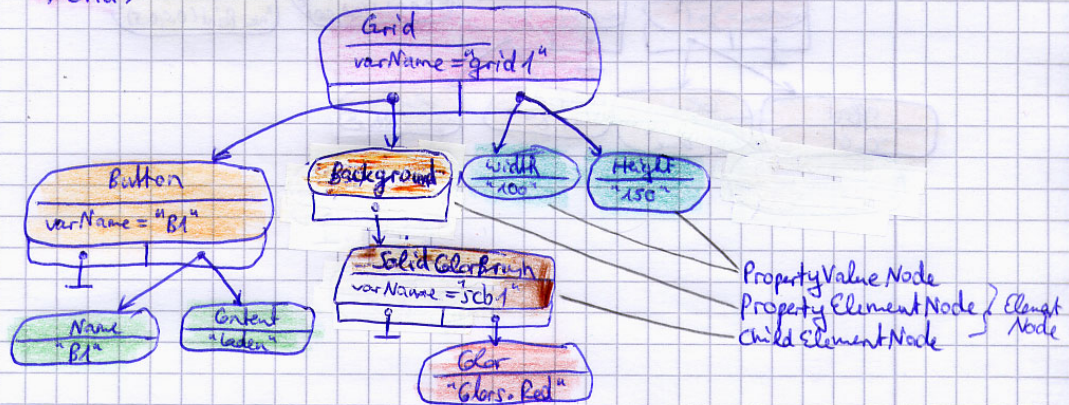 Grid
varName = "grid1"
Button
varName = "B1"
Background
Width
"100"
Height
"150"
SolidColorBrush
varName = "scb1"
Name
"B1"
Content
"Laden"
Color
"Colors.Red"
PropertyValueNode
PropertyElementNode
ChildElementNode
Element
Node